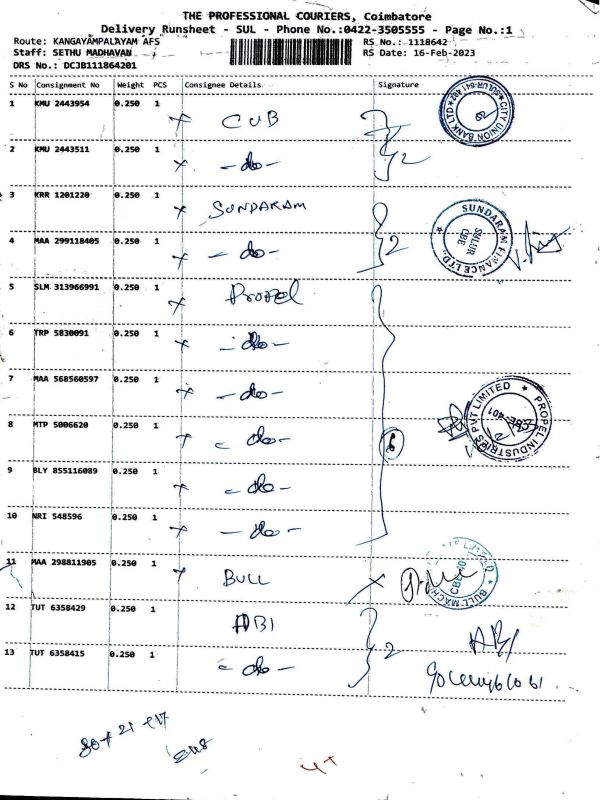 THE PROFESSIONAL COURIERS, Coimbatore
Delivery Runsheet - SUL - Phone No.:0422-3505555 - Page No.:1
Route: KANGAYAMPALAYAM AFS RS No.: 1118642
Staff: SETHU MADHAVAN RS Date: 16-Feb-2023
DRS No.: DCJB111864201
S No Consignment No Weight PCS Consignee Details Signature
1 KMU 2443954 0.250 1 CUB
CITY UNION BANK LTD
2 KMU 2443511 0.250 1 -do- 2
3 KRR 1201220 0.250 1 SUNDARAM
SUNDARAM FINANCE LTD
SULUR
CBE
4 MAA 299118405 0.250 1 -do- 2
5 SLM 313966991 0.250 1 Propel
6 TRP 5830091 0.250 1 -do-
7 MAA 568560597 0.250 1 -do-
PROPEL INDUSTRIES PVT LIMITED
8 MTP 5006620 0.250 1 -do- 6
9 BLY 855116089 0.250 1 -do-
10 NRI 548596 0.250 1 -do-
11 MAA 298811905 0.250 1 BULL
12 TUT 6358429 0.250 1 ABI
13 TUT 6358415 0.250 1 -do- 2